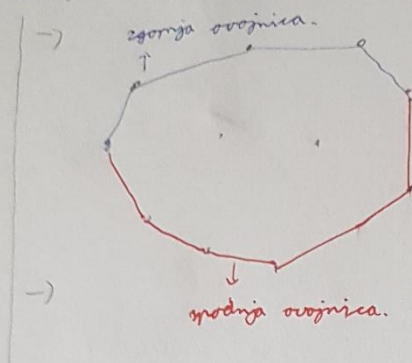 → zgornja ovojnica.
→
spodnja ovojnica.